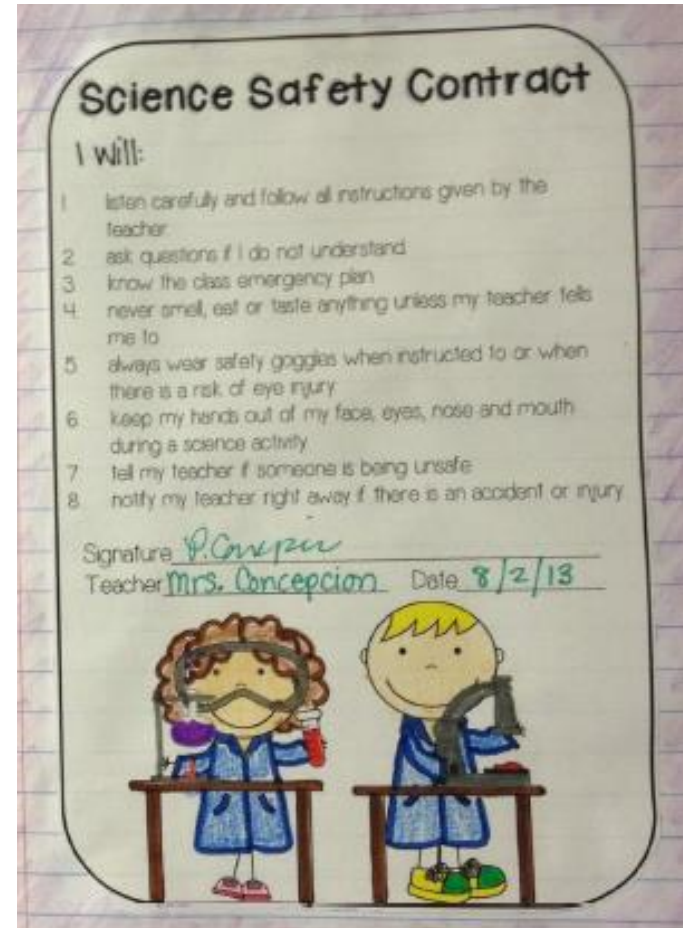 Science Safety Contract
I will:
1 listen carefully and follow all instructions given by the
teacher
2 ask questions if I do not understand
3 know the class emergency plan
4 never smell, eat or taste anything unless my teacher tells
me to
5 always wear safety goggles when instructed to or when
there is a risk of eye injury
6 keep my hands out of my face, eyes, nose and mouth
during a science activity
7 tell my teacher if someone is being unsafe
8 notify my teacher right away if there is an accident or injury
Signature P.
Teacher Mrs. Concepcion Date 8/2/13